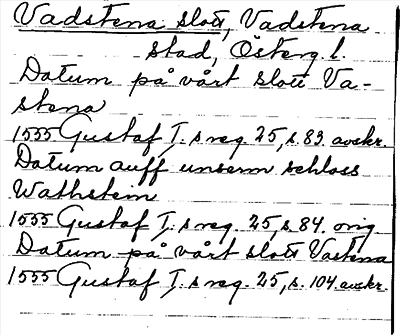 Vadstena slott, Vadstena
stad, Österg l.
Datum på vårt slott Va-
stena
1555 Gustaf I.s reg. 25, s. 83. avskr.
Datum auff unserm schloss
Wathstein
1555 Gustaf I.s reg. 25, s. 84. orig
Datum på vårt slott Vastena
1555 Gustaf I.s reg. 25, s. 104. avskr.